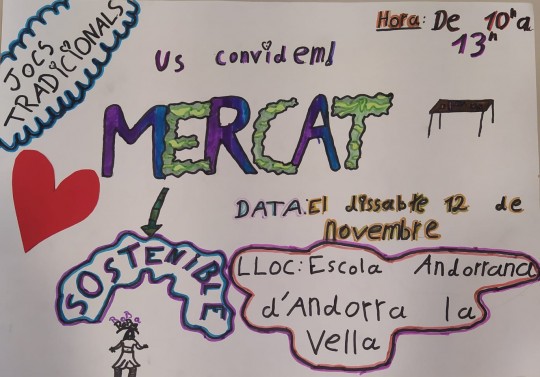 JOCS
TRADICIONALS
Hora: De 10h a
13h
Us convidem!
MERCAT
DATA: El dissabte 12 de
novembre
SOSTENIBLE
LLOC: Escola Andorrana
d'Andorra la
Vella